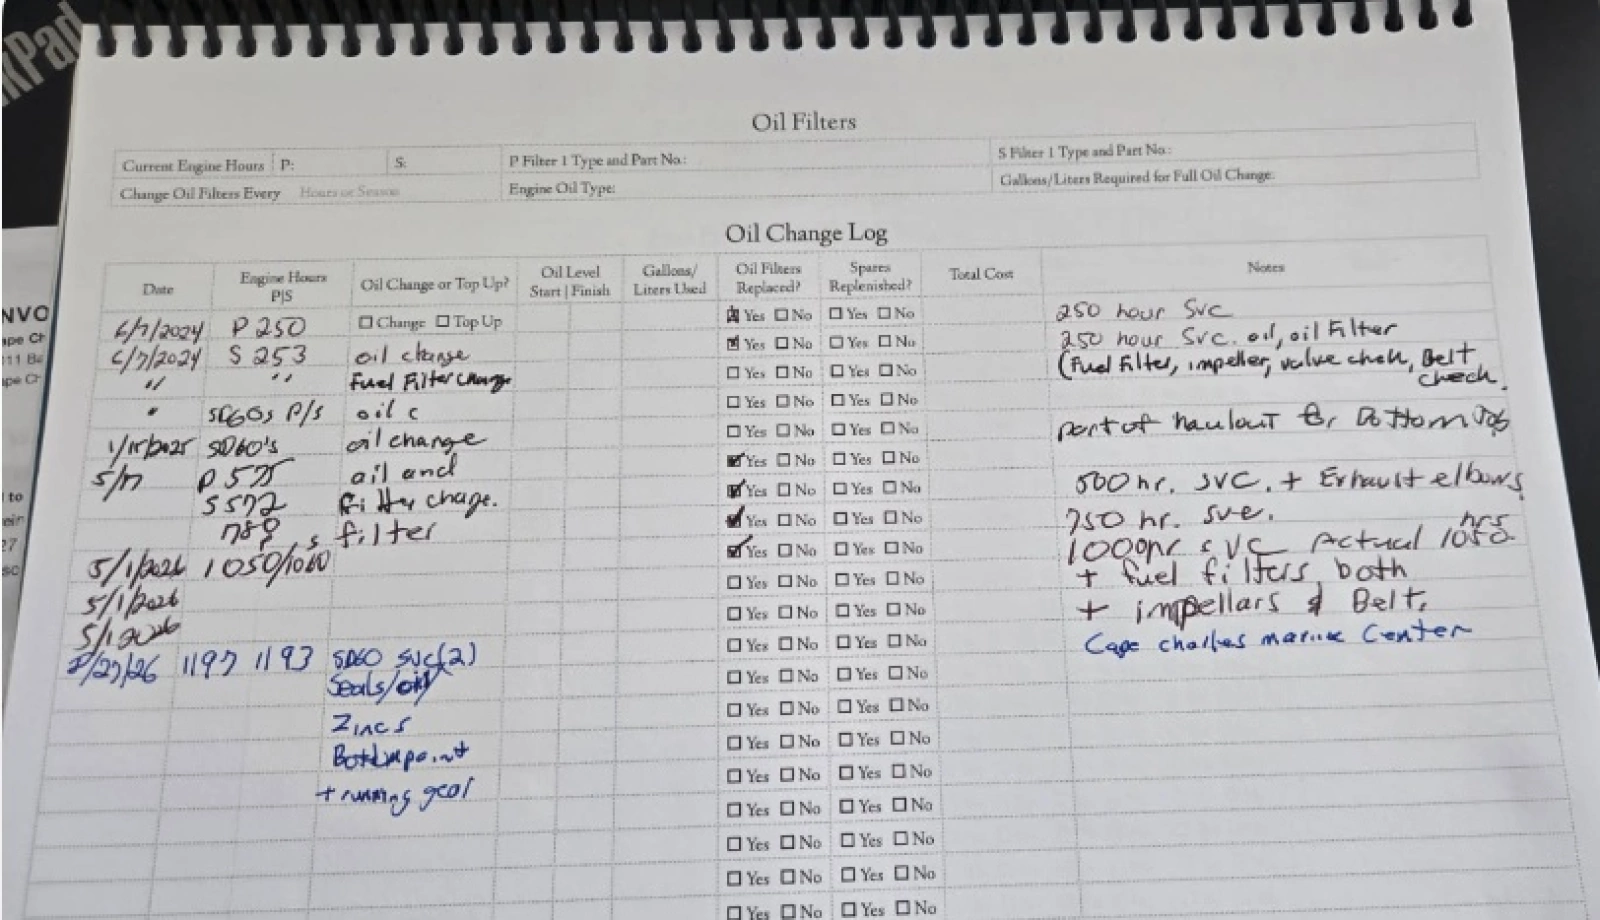 kPad
NVO
ape Ch
11 Ba
ape Ch
to
ein
27
sc
Oil Filters
Current Engine Hours P: S: P Filter 1 Type and Part No.: S Filter 1 Type and Part No.:
Change Oil Filters Every Hours or Season Engine Oil Type: Gallons/Liters Required for Full Oil Change:
Oil Change Log
Date Engine Hours P|S Oil Change or Top Up? Oil Level Start | Finish Gallons/ Liters Used Oil Filters Replaced? Spares Replenished? Total Cost Notes
6/7/2024 P 250 ☐ Change ☐ Top Up ☒ Yes ☐ No ☐ Yes ☐ No 250 hour Svc
6/7/2024 S 253 oil change ☒ Yes ☐ No ☐ Yes ☐ No 250 hour Svc. oil, oil Filter
" " Fuel Filter change ☐ Yes ☐ No ☐ Yes ☐ No (Fuel Filter, impeller, valve chek, Belt check
" SD60s P/S oil c ☐ Yes ☐ No ☐ Yes ☐ No
1/15/2025 SD60's oil change ☐ Yes ☐ No ☐ Yes ☐ No part of haulout for Bottom Job
5/17 P 575 oil and ☑ Yes ☐ No ☐ Yes ☐ No
S 572 filter chage. ☑ Yes ☐ No ☐ Yes ☐ No 500 hr. SVC. + Exhaust elbows
789 , s filter ☑ Yes ☐ No ☐ Yes ☐ No 750 hr. sve.
5/1/2026 1050/1060 ☑ Yes ☐ No ☐ Yes ☐ No 1000hr SVC Actual 1050 hrs
5/1/2026 ☐ Yes ☐ No ☐ Yes ☐ No + fuel filters both
5/1/2026 ☐ Yes ☐ No ☐ Yes ☐ No + impellars & Belt.
/27/26 1197 1193 SD60 svc(2) ☐ Yes ☐ No ☐ Yes ☐ No Cape charles marine Center
Seals/oil ☐ Yes ☐ No ☐ Yes ☐ No
Zincs ☐ Yes ☐ No ☐ Yes ☐ No
Bottompaint ☐ Yes ☐ No ☐ Yes ☐ No
+ running gear ☐ Yes ☐ No ☐ Yes ☐ No
☐ Yes ☐ No ☐ Yes ☐ No
☐ Yes ☐ No ☐ Yes ☐ No
☐ Yes ☐ No ☐ Yes ☐ No
☐ Yes ☐ No ☐ Yes ☐ No